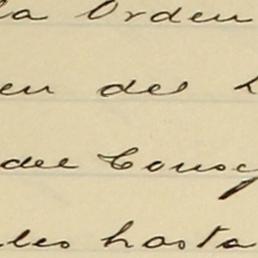 la Orden
en del
del Consej
les hasta